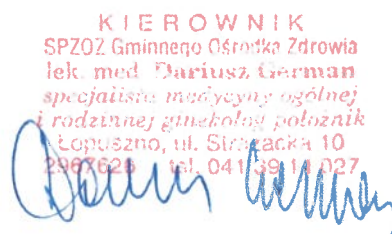 KIEROWNIK
SPZOZ Gminnego Ośrodka Zdrowia
lek. med. Dariusz German
specjalista medycyny ogólnej
i rodzinnej ginekolog położnik
Łopuszno, ul. Strażacka 10
2967626 tel. 041 39 14 027